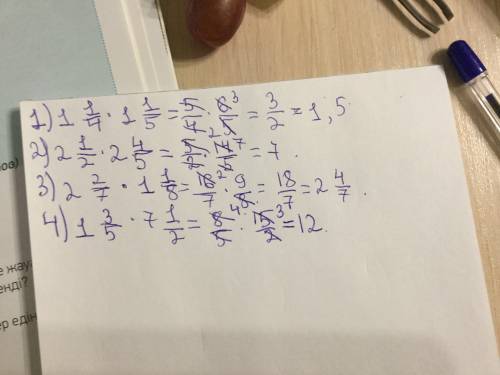 1) 1 1/4 · 1 1/5 = 5/4 · 6 3/5 = 3/2 = 1,5
2) 2 1/2 · 2 4/5 = 5/2 · 14 7/5 = 7.
3) 2 2/7 · 1 1/8 = 16 2/7 · 9/8 = 18/7 = 2 4/7.
4) 1 3/5 · 7 1/2 = 8 4/5 · 15 3/2 = 12.
е жауа
енді?
ер един